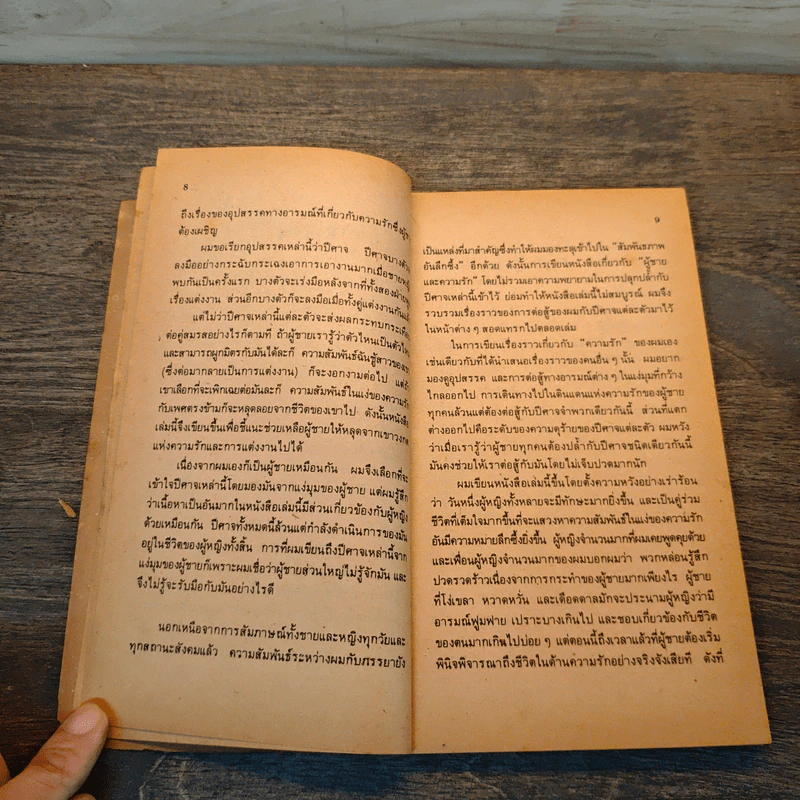 8
ถึงเรื่องของอุปสรรคทางอารมณ์ที่เกี่ยวกับความรักซึ่ง
ต้องเผชิญ
ผมขอเรียกอุปสรรคเหล่านี้ว่าปีศาจ ปีศาจบางตัว
ลงมืออย่างกระฉับกระเฉงเอาการเอางานมากเมื่อชายหญิง
พบกันเป็นครั้งแรก บางตัวจะเร่งมือหลังจากที่ทั้งสองฝ่าย
เรื่องแต่งงาน ส่วนอีกบางตัวก็จะลงมือเมื่อทั้งคู่แต่งงานกัน
แต่ไม่ว่าปีศาจเหล่านี้แต่ละตัวจะส่งผลกระทบกระเทือน
ต่อคู่สมรสอย่างไรก็ตามที่ ถ้าผู้ชายเรารู้ว่าตัวไหนเป็นตัวไหน
และสามารถผูกมิตรกับมันได้ละก็ ความสัมพันธ์ฉันชู้สาวของเขา
(ซึ่งต่อมากลายเป็นการแต่งงาน) ก็จะงอกงามต่อไป แต่ถ้า
เขาเลือกที่จะเพิกเฉยต่อมันละก็ ความสัมพันธ์ในแง่ของความรัก
กับเพศตรงข้ามก็จะหลุดลอยจากชีวิตของเขาไป ดังนั้นหนังสือ
เล่มนี้จึงเขียนขึ้นเพื่อชี้แนะช่วยเหลือผู้ชายให้หลุดจากเขาวงกต
แห่งความรักและการแต่งงานไปได้
เนื่องจากผมเองก็เป็นผู้ชายเหมือนกัน ผมจึงเลือกที่จะ
เข้าใจปีศาจเหล่านี้โดยมองมันจากแง่มุมของผู้ชาย แต่ผมรู้สึก
ว่าเนื้อหาเป็นอันมากในหนังสือเล่มนี้มีส่วนเกี่ยวข้องกับผู้หญิง
ด้วยเหมือนกัน ปีศาจทั้งหมดนี้ล้วนแต่กำลังดำเนินการของมัน
อยู่ในชีวิตของผู้หญิงทั้งสิ้น การที่ผมเขียนถึงปีศาจเหล่านี้จาก
แง่มุมของผู้ชายก็เพราะผมเชื่อว่าผู้ชายส่วนใหญ่ไม่รู้จักมัน และ
จึงไม่รู้จะรับมือกับมันอย่างไรดี
นอกเหนือจากการสัมภาษณ์ทั้งชายและหญิงทุกวัยและ
ทุกสถานะสังคมแล้ว ความสัมพันธ์ระหว่างผมกับภรรยายัง
9
เป็นแหล่งที่มาสำคัญซึ่งทำให้ผมมองทะลุเข้าไปใน "สัมพันธภาพ
อันลึกซึ้ง" อีกด้วย ดังนั้นการเขียนหนังสือเกี่ยวกับ "ผู้ชาย
และความรัก" โดยไม่รวมเอาความพยายามในการปลุกปล้ำกับ
ปีศาจเหล่านี้เข้าไว้ ย่อมทำให้หนังสือเล่มนี้ไม่สมบูรณ์ ผมจึง
รวบรวมเรื่องราวของการต่อสู้ของผมกับปีศาจแต่ละตัวมาไว้
ในหน้าต่าง ๆ สอดแทรกไปตลอดเล่ม
ในการเขียนเรื่องราวเกี่ยวกับ "ความรัก" ของผมเอง
เช่นเดียวกับที่ได้นำเสนอเรื่องราวของคนอื่น ๆ นั้น ผมอยาก
มองดูอุปสรรค และการต่อสู้ทางอารมณ์ต่าง ๆ ในแง่มุมที่กว้าง
ไกลออกไป การเดินทางไปในดินแดนแห่งความรักของผู้ชาย
ทุกคนล้วนแต่ต้องต่อสู้กับปีศาจจำพวกเดียวกันนี้ ส่วนที่แตก
ต่างออกไปคือระดับของความดุร้ายของปีศาจแต่ละตัว ผมหวัง
ว่าเมื่อเรารู้ว่าผู้ชายทุกคนต้องปล้ำกับปีศาจชนิดเดียวกันนี้
มันคงช่วยให้เราต่อสู้กับมันโดยไม่เจ็บปวดมากนัก
ผมเขียนหนังสือเล่มนี้ขึ้นโดยตั้งความหวังอย่างเร่าร้อน
ว่า วันหนึ่งผู้หญิงทั้งหลายจะมีทักษะมากยิ่งขึ้น และเป็นคู่ร่วม
ชีวิตที่เต็มใจมากขึ้นที่จะแสวงหาความสัมพันธ์ในแง่ของความรัก
อันมีความหมายลึกซึ้งยิ่งขึ้น ผู้หญิงจำนวนมากที่ผมเคยพูดคุยด้วย
และเพื่อนผู้หญิงจำนวนมากของผมบอกผมว่า พวกหล่อนรู้สึก
ปวดรวดร้าวเนื่องจากการกระทำของผู้ชายมากเพียงไร ผู้ชาย
ที่โง่เขลา หวาดหวั่น และเดือดดาลมักจะประณามผู้หญิงว่ามี
อารมณ์ฟูมฟาย เปราะบางเกินไป และชอบเกี่ยวข้องกับชีวิต
ของตนมากเกินไปบ่อย ๆ แต่ตอนนี้ถึงเวลาแล้วที่ผู้ชายต้องเริ่ม
พินิจพิจารณาถึงชีวิตในด้านความรักอย่างจริงจังเสียที ดังที่